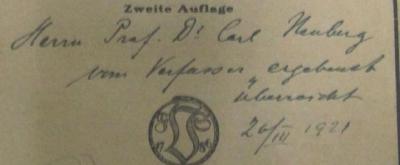 Zweite Auflage
Herrn Prof. Dr Carl Neuberg
vom Verfasser ergebenst
überreicht
26/III 1921
17 89